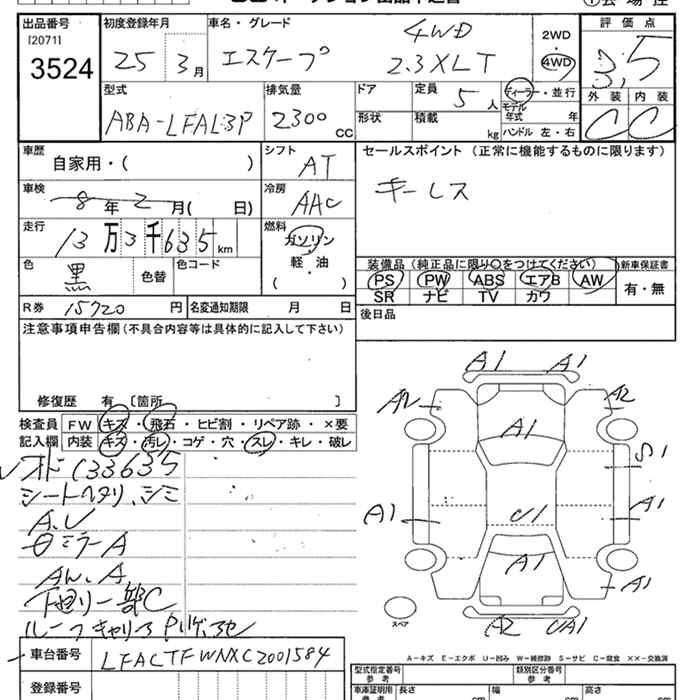 出品番号 初度登録年月 車名・グレード 2WD 評価点
[20711] 25 3月 エスケープ 4WD 4WD 3.5
3524 2.3XLT
型式 排気量 ドア 定員 5人 ディーラー・並行 外装 内装
ABA-LFAL3P 2300cc 形状 積載 kg モデル年式 年 C C
ハンドル 左・右
車歴 シフト セールスポイント (正常に機能するものに限ります)
自家用・( ) AT キーレス
車検 冷房
8年2月( 日) AAC
走行 燃料
13万3千635km ガソリン
軽・油
( )
色 黒 色替 色コード
装備品(純正品に限り○をつけてください) 新車保証書
PS PW ABS エアB AW 有・無
SR ナビ TV カワ
R券 15720円 名変通知期限 月 日 後日品
注意事項申告欄(不具合内容等は具体的に記入して下さい)
修復歴 有 [箇所 ]
検査員 FW キズ・飛石・ヒビ割・リペア跡・×要
記入欄 内装 キズ・汚レ・コゲ・穴・スレ・キレ・破レ
133635
シートヘタリ、シミ
A.U
ミラーA
AW.A
下廻リ一部C
A1 A1
A2 A2
A1
S1
A1 A1
U1
A1
A1
A2 UA1
スペア
A-キズ E-エクボ U-凹み W-補修跡 S-サビ C-腐食 ××-交換済
車台番号 LFACTFWNXC2001584
登録番号
型式指定番号 類別区分番号
参考 参考
車庫証明用 長さ 幅 高さ
参考 cm cm cm